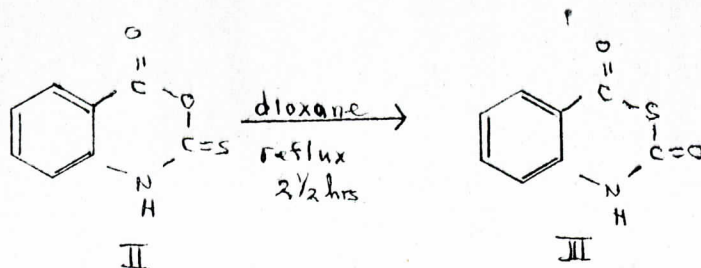 O
O
C
O
C=S
N
H
II
dioxane
reflux
2 1/2 hrs
C
S
C=O
N
H
III